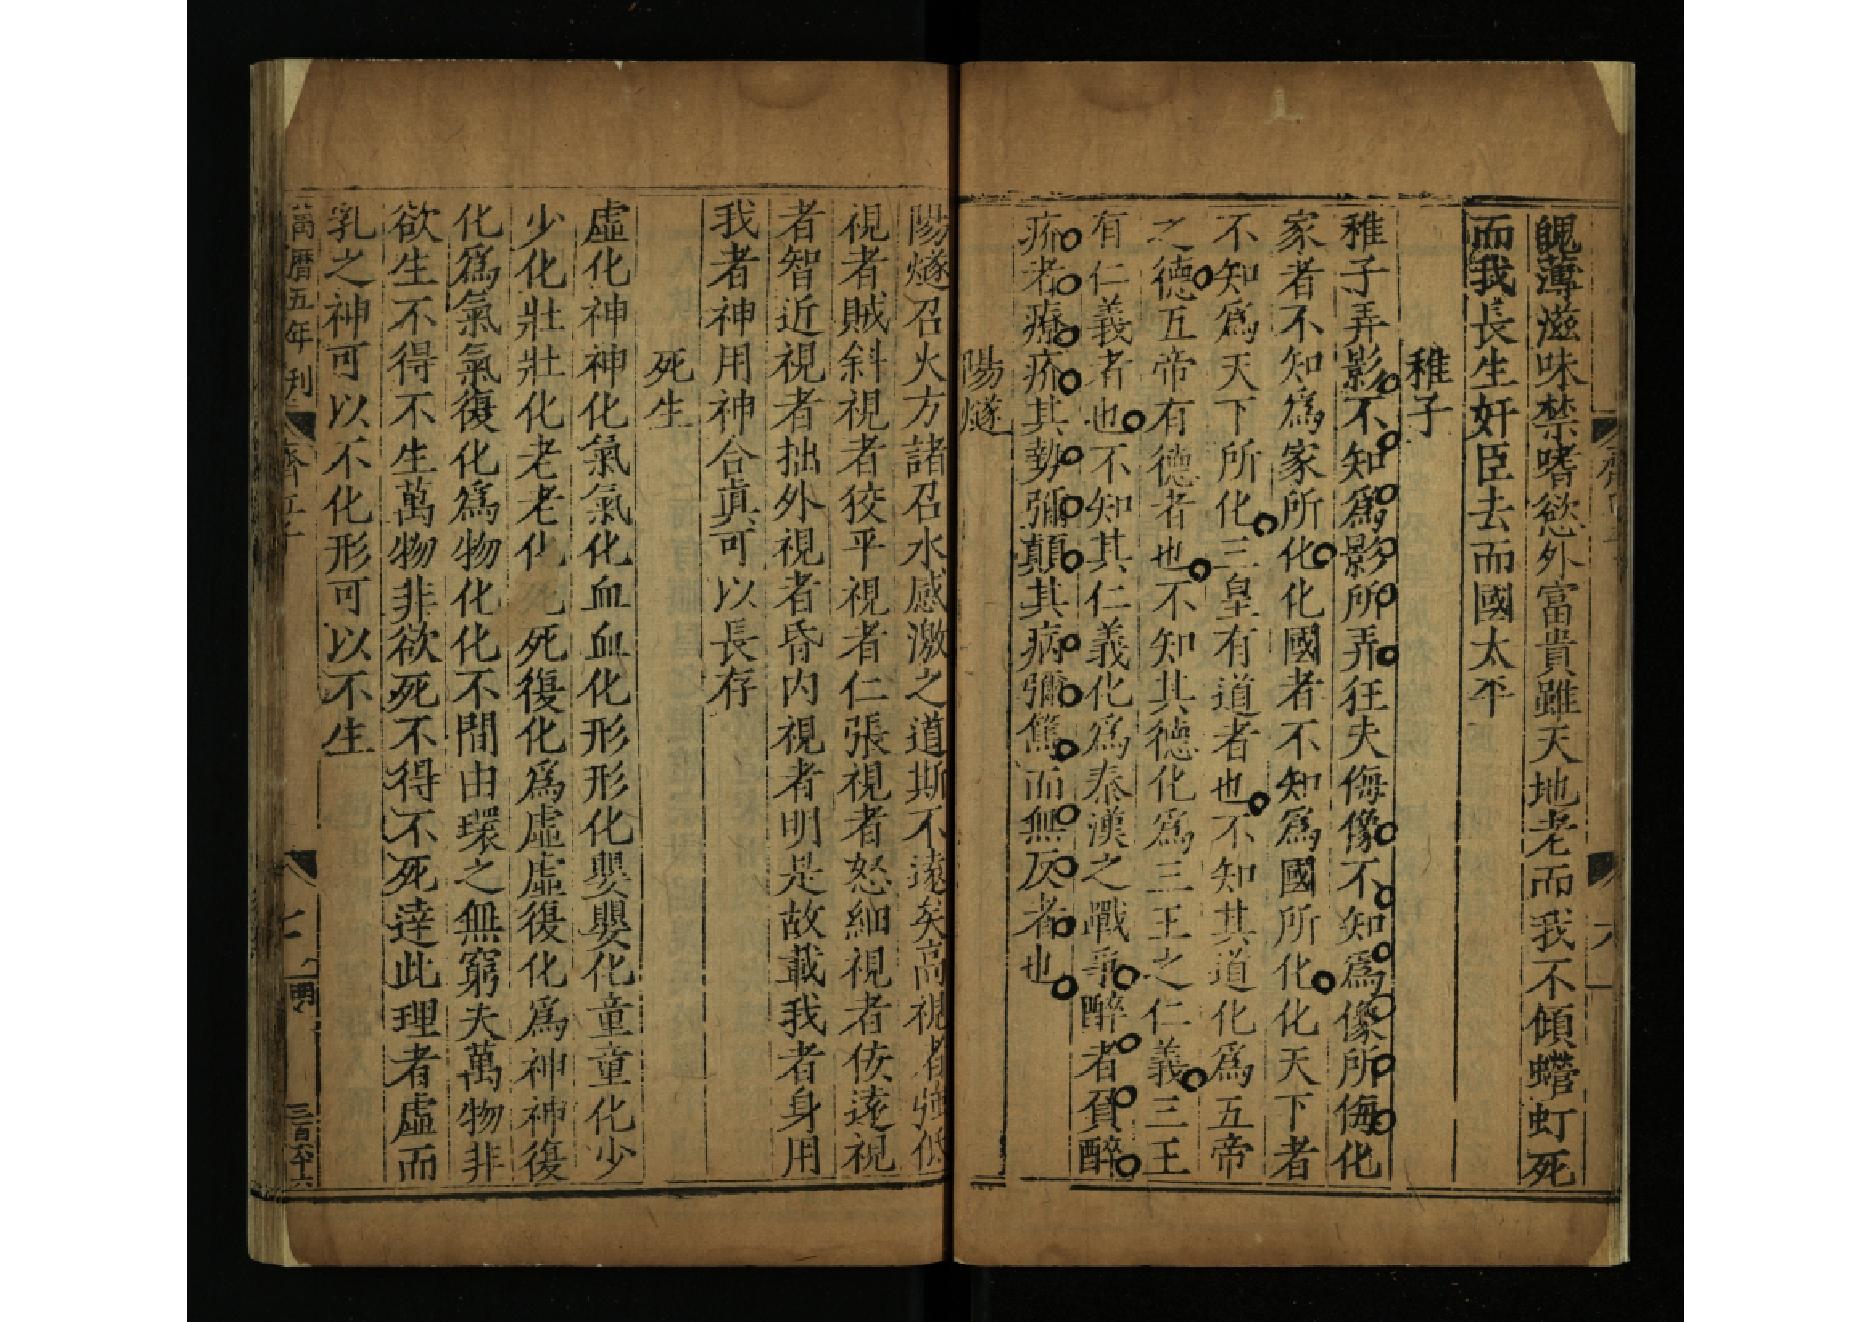 魄薄滋味禁嗜慾外富貴雖天地老而我不傾蟾虹死
而我長生奸臣去而國太平
稚子
稚子弄影不知爲影所弄狂夫侮像不知爲像所侮化
家者不知爲家所化化國者不知爲國所化化天下者
不知爲天下所化三皇有道者也不知其道化爲五帝
之德五帝有德者也不知其德化爲三王之仁義三王
有仁義者也不知其仁義化爲秦漢之戰爭醉者負醉
疥者療疥其勢彌顛其病彌篤而無仄者也
陽燧
陽燧召火方諸召水感激之道斯不遠矣高視者強低
視者賊斜視者狡平視者仁張視者怒細視者佞遠視
者智近視者拙外視者昏内視者明是故載我者身用
我者神用神合眞可以長存
死生
虛化神神化氣氣化血血化形形化嬰嬰化童童化少
少化壯壯化老老化死死復化爲虛虛復化爲神神復
化爲氣氣復化爲物化化不間由環之無窮夫萬物非
欲生不得不生萬物非欲死不得不死逹此理者虛而
乳之神可以不化形可以不生
萬曆五年刊 齊丘子 七 明 三百六十六